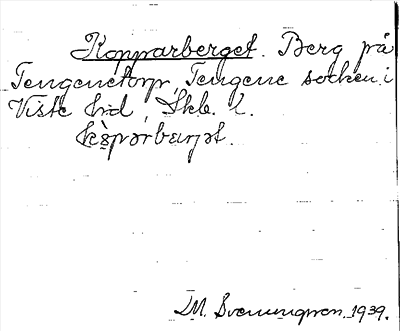 Kopparberget. Berg på
Tengenetorp, Tengene socken i
Viste hd, Skb. l.
D.M. Svenungsson. 1939.